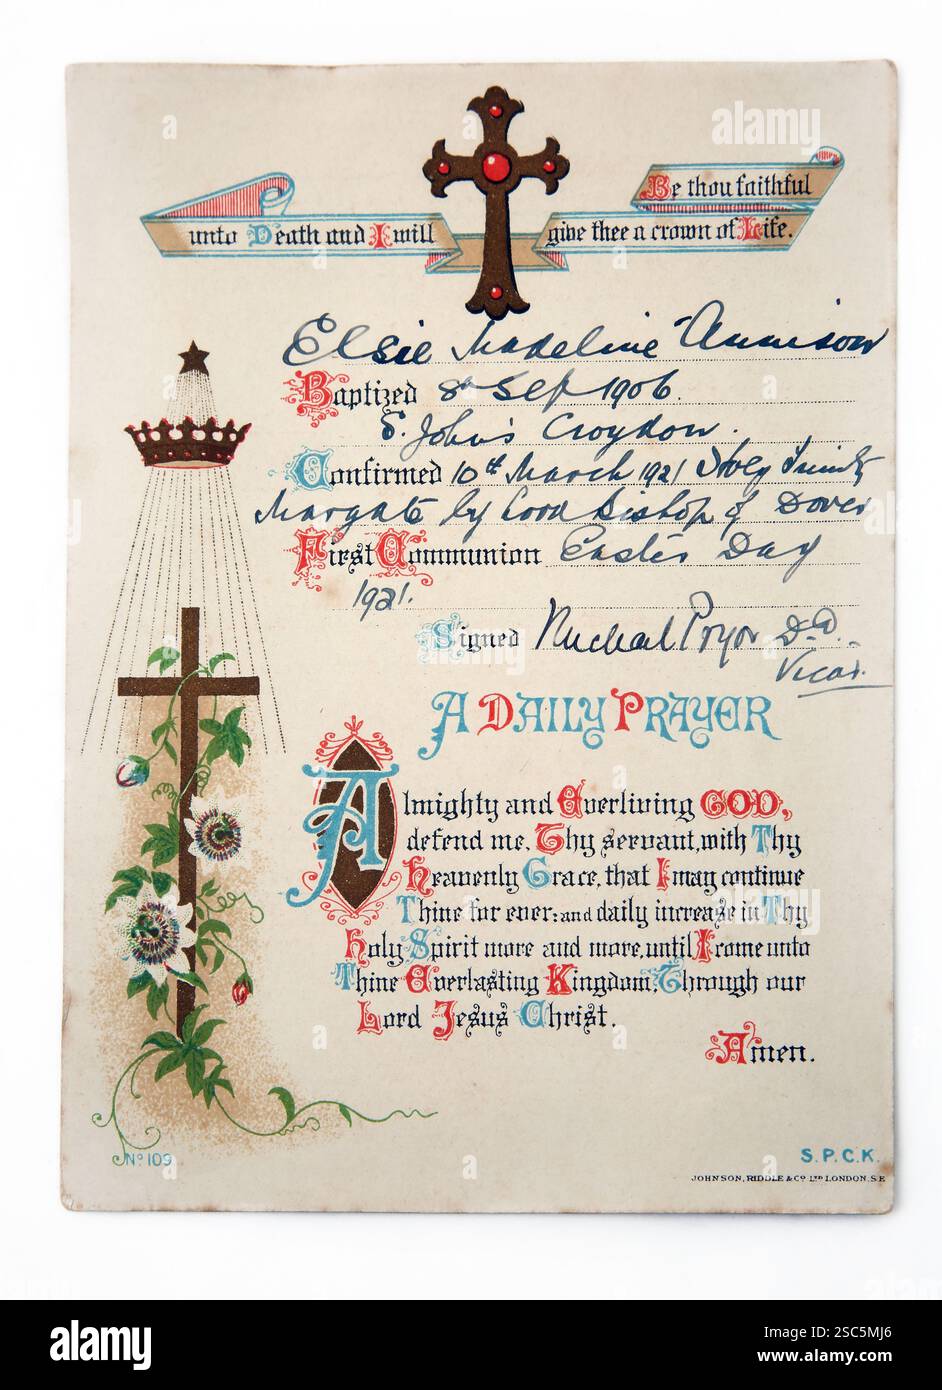 Be thou faithful
unto Death and I will give thee a crown of Life.
Elsie Madeline Annison
Baptized 8th Sep 1906.
S. John's Croydon.
Confirmed 10th March 1921 Holy Trinity
Margate by Lord Bishop of Dover
First Communion Easter Day
1921.
Signed Michael Pryor D.D.
Vicar.
A DAILY PRAYER
Almighty and Everliving GOD,
defend me, Thy servant, with Thy
Heavenly Grace, that I may continue
Thine for ever; and daily increase in Thy
Holy Spirit more and more, until I come unto
Thine Everlasting Kingdom, Through our
Lord Jesus Christ.
Amen.
No 109
S.P.C.K.
JOHNSON, RIDDLE & CO LTD LONDON, S.E
alamy
alamy
Image ID: 2SC5MJ6
www.alamy.com